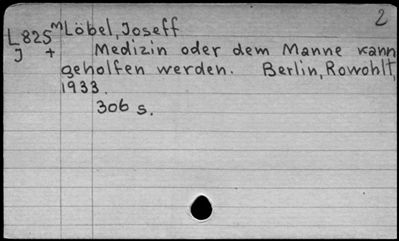 2
L825 m Löbel, Joseff
J + Medizin oder dem Manne kann
geholfen werden. Berlin, Rowohlt,
1933.
306 s.